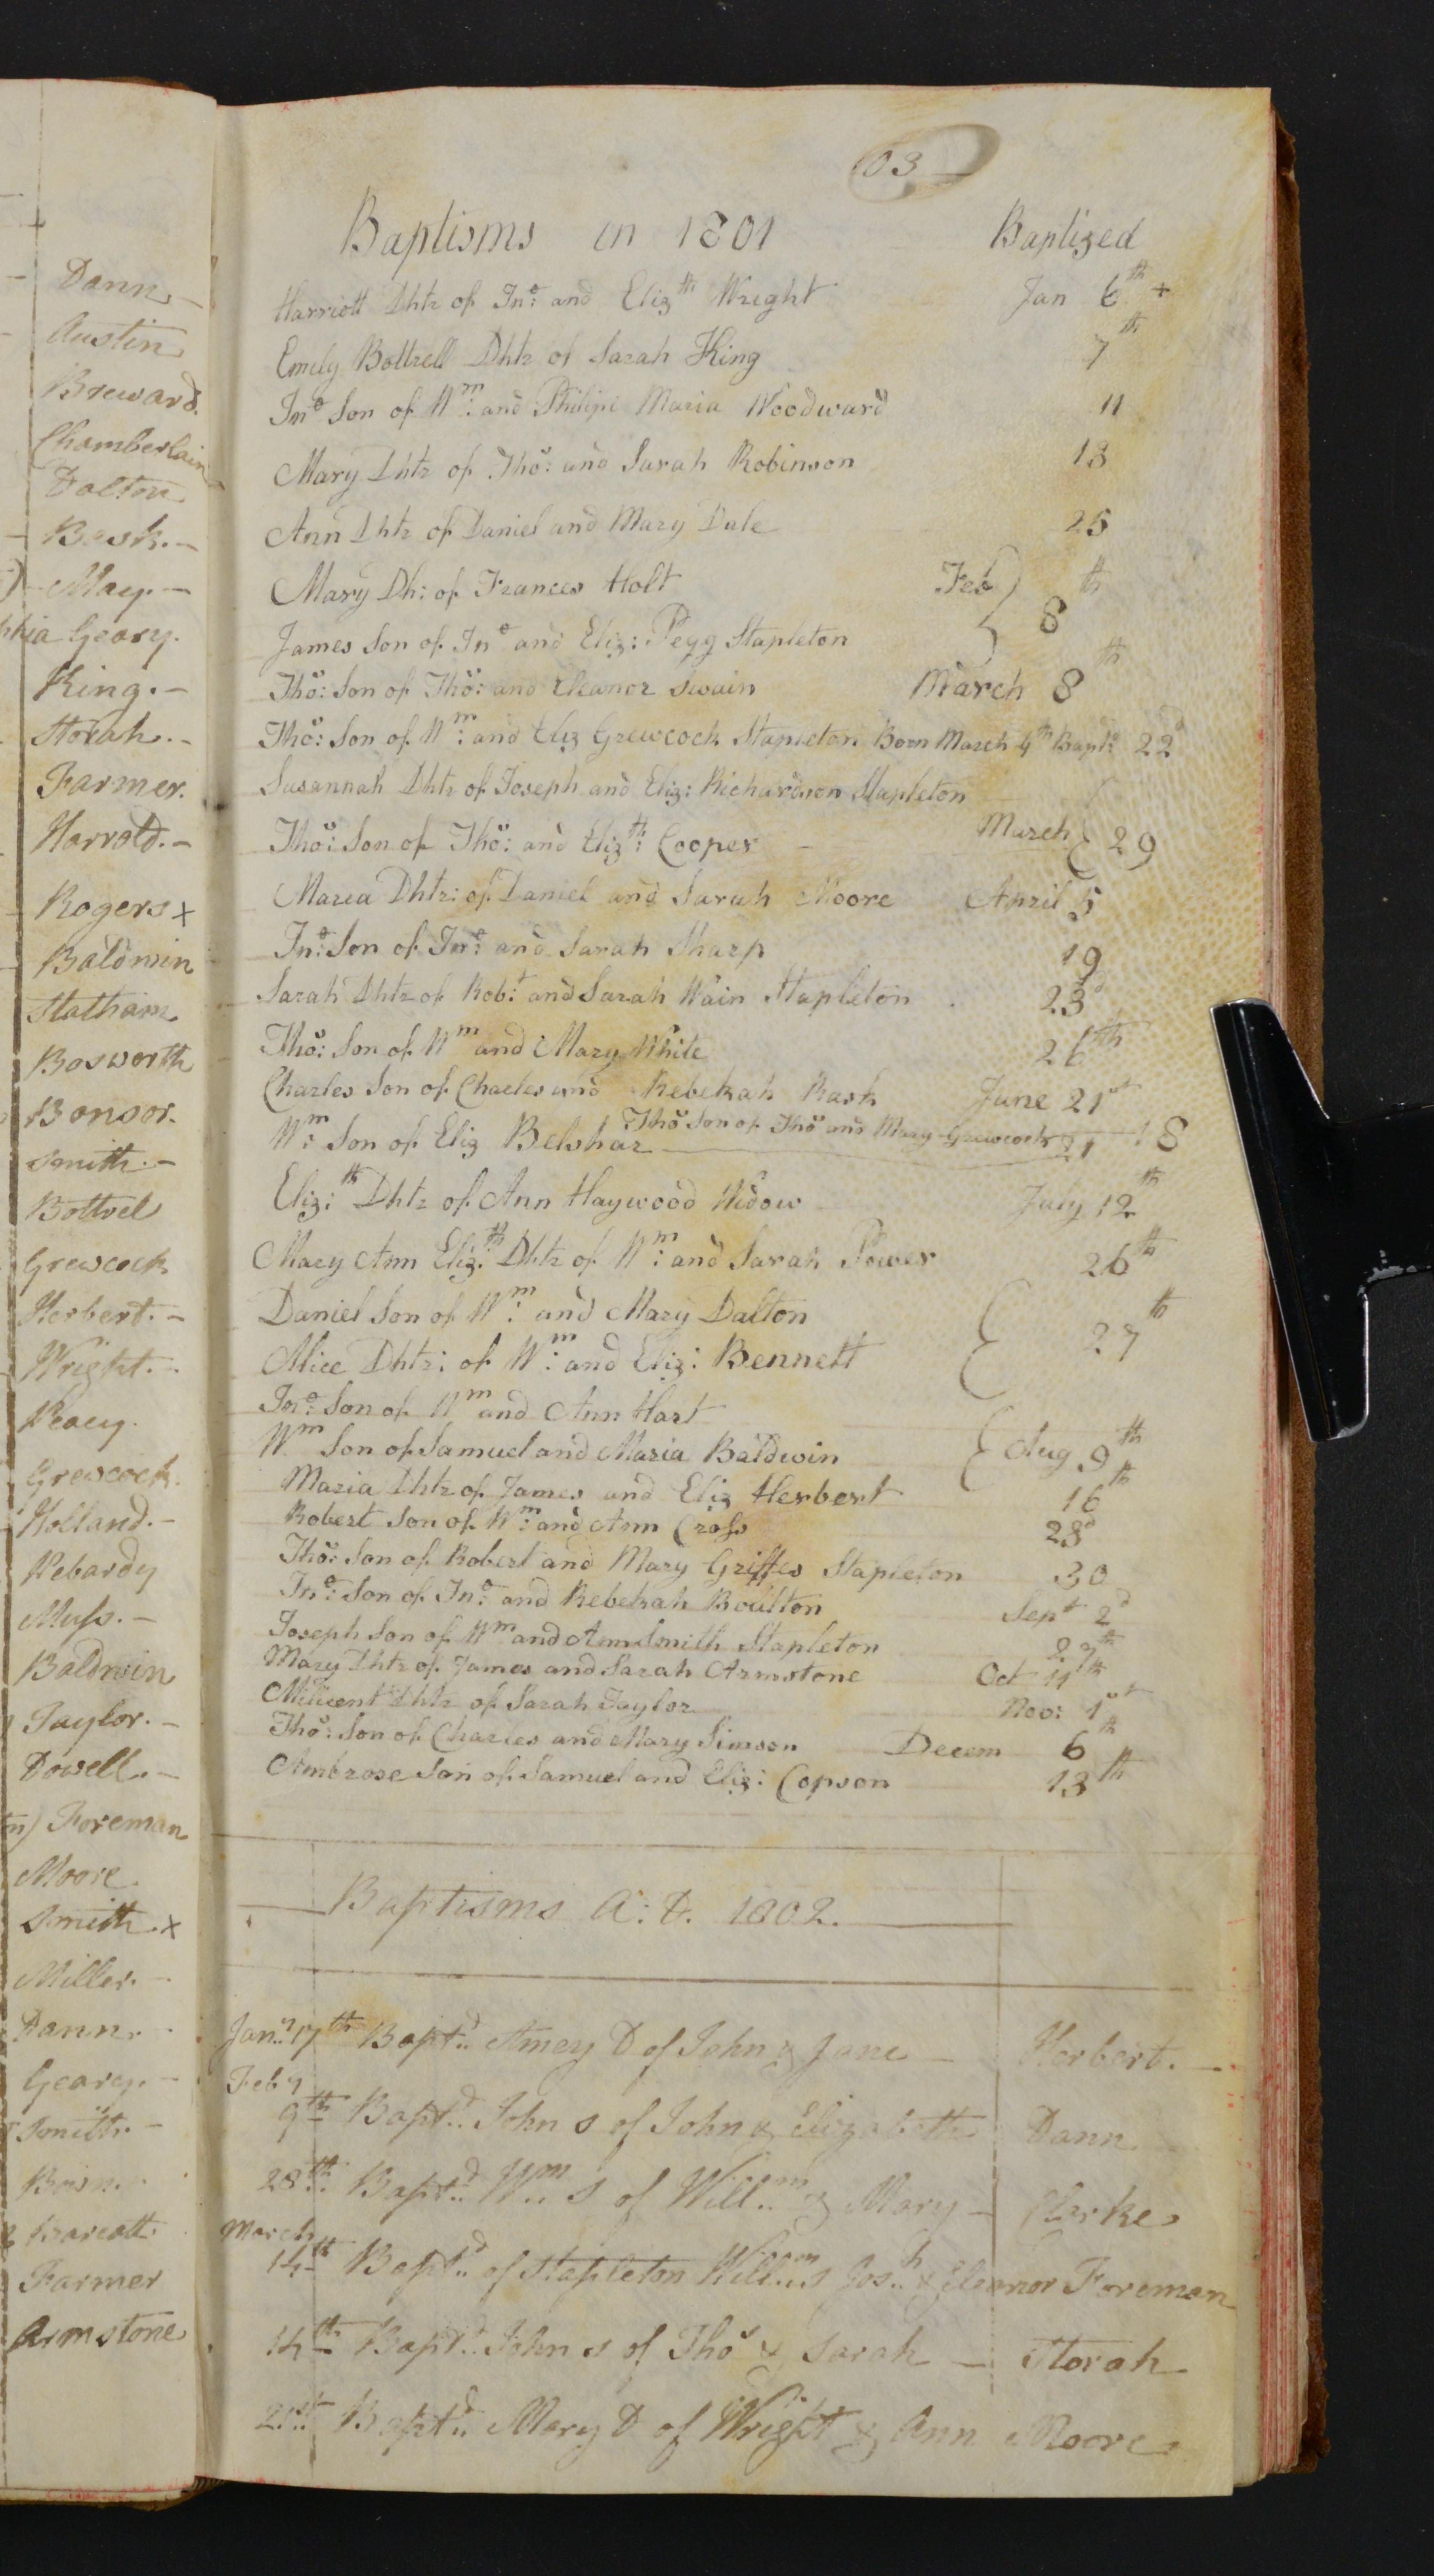 Dann
Austin
Breward.
Chamberlain
Dalton
Bask.-
May.-
Geary.
King.-
Storah.-
Farmer.
Harrold.-
Rogers x
Baldwin
Statham
Bosworth
Bonsor.
Smith.-
Bottrel
Grewcock
Herbert.-
Wright.-
Peacy.
Grewcock.
Holland.-
Pebardy
Muss.-
Baldwin
Taylor.-
Dowell.-
Foreman
Moore.
Smith.x
Miller.-
Dann.-
Geary.-
Smith.-
Farmer
Armstone
03
Baptisms in 1801 Baptized
Harriott Dhtr of Jno: and Elizth Wright Jan 6th +
Emily Bottrell Dhtr of Sarah King 7th
Jno Son of Wm: and Philipi Maria Woodward 11
Mary Dhtr of Thos: and Sarah Robinson 18
Ann Dhtr of Daniel and Mary Dale 25
Mary Dh: of Frances Holt Feb
James Son of Jno and Eliz: Pegg Stapleton 8th
Thos: Son of Thos: and Eleanor Swain March 8th
Thos: Son of Wm: and Eliz Grewcock Stapleton Born March 4th Baptd 22d
Susannah Dhtr of Joseph and Eliz: Richardson Stapleton
Thos: Son of Thos: and Elizth: Cooper March 29
Maria Dhtr: of Daniel and Sarah Moore April 5
Jno: Son of Jno: and Sarah Sharp 19
Sarah Dhtr of Robt: and Sarah Wain Stapleton 23d
Thos: Son of Wm and Mary White 26th
Charles Son of Charles and Rebekah Bash June 21st
Thos Son of Thos and Mary Grewcock 21
Wm: Son of Eliz Belshar 18
Eliz:th Dhtr of Ann Haywood Widow July 12th
Mary Ann Eliz:th Dhtr of Wm: and Sarah Power 26th
Daniel Son of Wm: and Mary Dalton
Alice Dhtr: of Wm: and Eliz: Bennett 27th
Jno: Son of Wm and Ann Hart
Wm Son of Samuel and Maria Baldwin Aug 9th
Maria Dhtr of James and Eliz Herbert 16th
Robert Son of Wm: and Ann Cross 23d
Thos: Son of Robert and Mary Griffes Stapleton 30
Jno: Son of Jno: and Rebekah Boulton Sept 2d
Joseph Son of Wm and Ann Smith Stapleton 27th
Mary Dhtr of James and Sarah Armstone Oct 11th
Milicent Dhtr of Sarah Taylor Nov: 1st
Thos: Son of Charles and Mary Simson Decem 6th
Ambrose Son of Samuel and Eliz: Copson 13th
Baptisms A:D. 1802.
Jany 17th Baptd Amey D of John & Jane - Herbert.-
Feby
9th Baptd John S of John & Elizabeth Dann
28th Baptd Wm S of Willm & Mary - Clarke
March
14th Baptd of Stapleton Willm S Josh & Eleanor Foreman
14th Baptd John s of Thos & Sarah - Storah
21st Baptd Mary D of Wright & Ann Moore